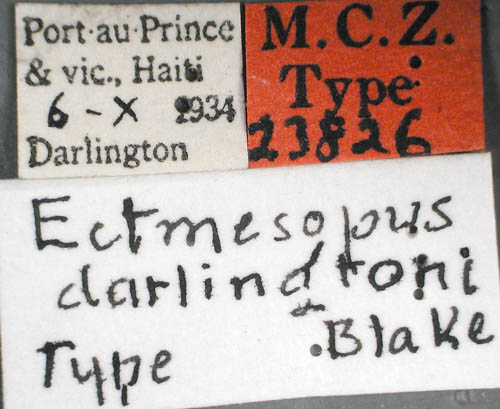 Port-au-Prince
& vic., Haiti
6-X 1934
Darlington
M.C.Z.
Type
23826
Ectmesopus
darlingtoni
Blake
Type